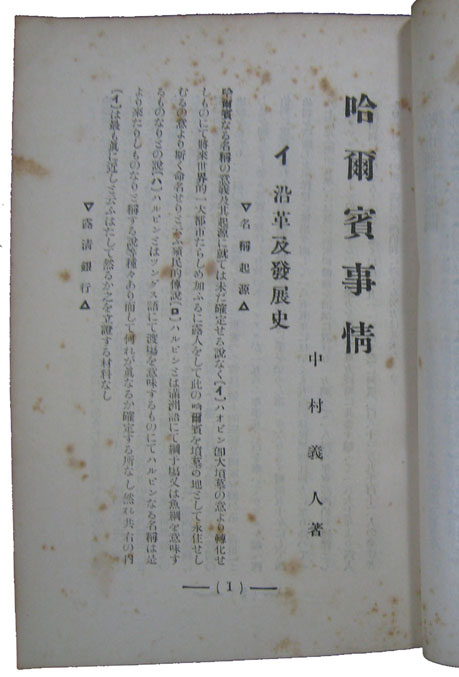 哈爾賓事情
中村義人著
イ 沿革及發展史
▽名稱起源△
哈爾賓なる名稱の意義及其起源に就ては未だ確定せる說なく(イ)ハオピン卽大墳墓の意より轉化せ
しものにて將來世界的一大都市たらしめ加ふるに露人をして此の哈爾賓を墳墓の地として永住せし
むるの意より斯く命名せりとふ殖民的傳說(ロ)ハルビンとは滿洲語にて網干場又は魚網を意味す
るものなりとの說(ハ)ハルピンとはツングス語にて渡場を意味するものにてハルピンなる名稱は是
より來たりしものなりと稱する說等種々あり而して何れが眞なるか確定する所なし然れ共右の內
(イ)は最も眞に近しと云ふはたして然るか之を立證する材料なし
▽露淸銀行△
(1)